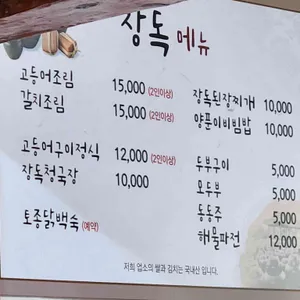 장독 메뉴
고등어조림 15,000 (2인이상)
갈치조림 15,000 (2인이상)
고등어구이정식 12,000 (2인이상)
장독청국장 10,000
토종닭백숙 (예약)
장독된장찌개 10,000
양푼이비빔밥 10,000
두부구이 5,000
모두부 5,000
동동주 5,000
해물파전 12,000
저희 업소의 쌀과 김치는 국내산 입니다.